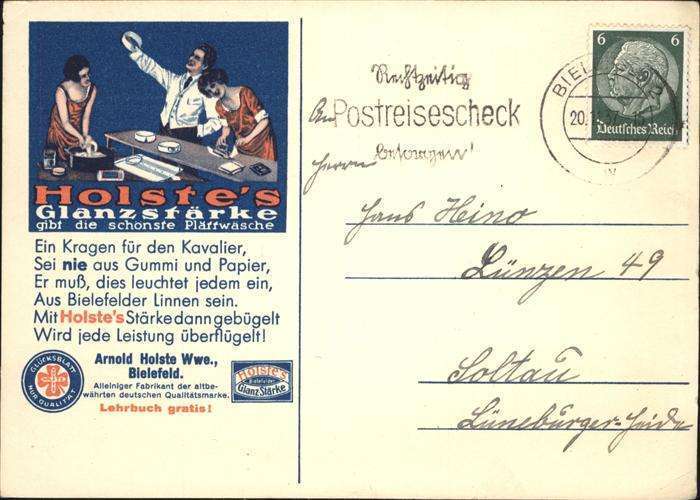 Holste's
Glanzstärke
gibt die schönste Plättwäsche
Ein Kragen für den Kavalier,
Sei nie aus Gummi und Papier,
Er muß, dies leuchtet jedem ein,
Aus Bielefelder Linnen sein.
Mit Holste's Stärke dann gebügelt
Wird jede Leistung überflügelt!
GLÜCKSBLATT
NUR QUALITÄT
Arnold Holste Wwe.,
Bielefeld.
Alleiniger Fabrikant der altbe-
währten deutschen Qualitätsmarke.
Lehrbuch gratis!
Holste's
Bielefelder
Glanz Stärke
Rechtzeitig
Postreisescheck
besorgen!
BIEL
20.
6 6
Deutsches Reich
An
Herrn
Hans Hino
Lünzen 49
Soltau
Lüneburger-Heide